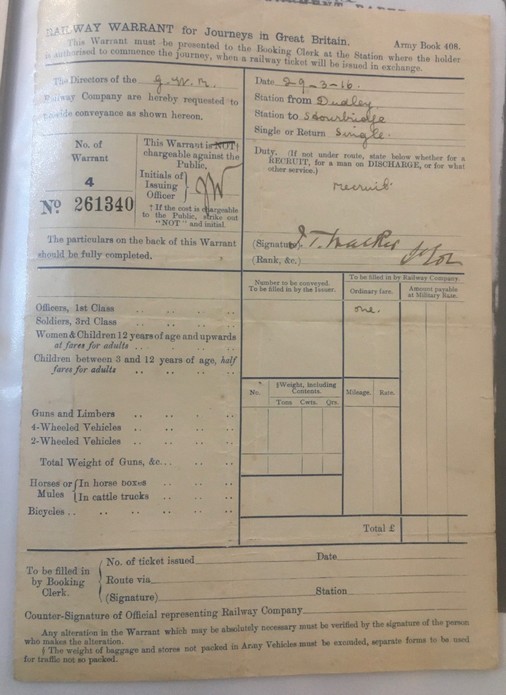 RAILWAY WARRANT for Journeys in Great Britain.
This Warrant must be presented to the Booking Clerk at the Station where the holder
is authorised to commence the journey, when a railway ticket will be issued in exchange.
Army Book 408.
The Directors of the G.W.R.
Railway Company are hereby requested to
provide conveyance as shown hereon.
Date 29-3-16.
Station from Dudley
Station to Stourbridge
Single or Return Single.
No. of
Warrant
4
No 261340
This Warrant is NOT†
chargeable against the
Public.
Initials of
Issuing
Officer
† If the cost is chargeable
to the Public, strike out
"NOT" and initial.
Duty. (If not under route, state below whether for a
RECRUIT, for a man on DISCHARGE, or for what
other service.)
recruit
The particulars on the back of this Warrant
should be fully completed.
(Signature)
(Rank, &c.)
Number to be conveyed.
To be filled in by the Issuer.
To be filled in by Railway Company.
Ordinary fare.
Amount payable
at Military Rate.
one.
Officers, 1st Class
Soldiers, 3rd Class
Women & Children 12 years of age and upwards
at fares for adults
Children between 3 and 12 years of age, half
fares for adults
No.
§Weight, including
Contents.
Tons Cwts. Qrs.
Mileage. Rate.
Guns and Limbers
4-Wheeled Vehicles
2-Wheeled Vehicles
Total Weight of Guns, &c.
Horses or Mules
In horse boxes
In cattle trucks
Bicycles
Total £
To be filled in
by Booking
Clerk.
No. of ticket issued Date
Route via
(Signature) Station
Counter-Signature of Official representing Railway Company
Any alteration in the Warrant which may be absolutely necessary must be verified by the signature of the person
who makes the alteration.
§ The weight of baggage and stores not packed in Army Vehicles must be excluded, separate forms to be used
for traffic not so packed.